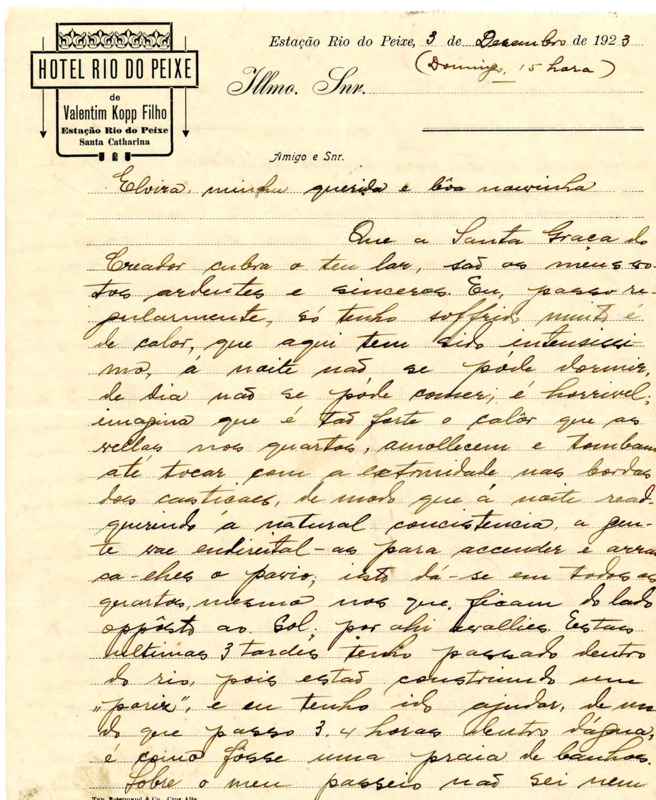 HOTEL RIO DO PEIXE
de
Valentim Kopp Filho
Estação Rio do Peixe
Santa Catharina
Estação Rio do Peixe, 3 de Dezembro de 1923
(Domingo, 15 hora)
Illmo. Snr.
Amigo e Snr.
Elvira, minha querida e bôa noivinha
Que a Santa Graça do
Creador cubra o teu lar, são os meus vo-
tos ardentes e sinceros. Eu, passo re-
gularmente, só tenho soffrido muito é
de calor, que aqui tem sido intensissi-
mo, á noite não se póde dormir,
de dia não se póde comer; é horrivel;
imagina que é tão forte o calôr que as
vellas nos quartos, amollecem e tombam
até tocar com a extremidade nas bordas
dos casticaes, de modo que á noite read-
querindo a natural concistencia, a gen-
te vae endireital-as para accender e arran
ca-lhes o pavio; isto dá-se em todos os
quartos, mesmo nos que ficam do lado
oppôsto ao Sol, por ahi avallies. Estas
ultimas 3 tardes tenho passado dentro
do rio, pois estão construindo um
"pariz", e eu tenho ido ajudar, de mo
do que passo 3, 4 horas dentro d'água,
é como fôsse uma praia de banhos.
Sobre o meu passeio não sei nem
Typ. & Co. Cruz Alta